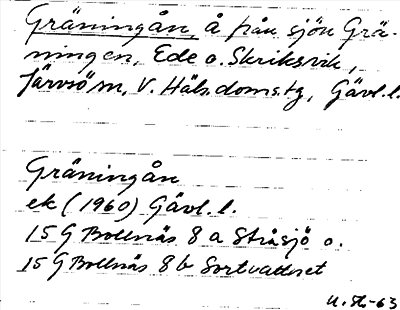 Gräningån, å från sjön Grä-
ningen, Ede o. Skriksvik,
Järvsö sn, V. Häls. doms.tg, Gävl.l.
Gräningån
ek (1960) Gävl.l.
15 G Bollnäs 8 a Stråsjö o.
15 G Bollnäs 8 b Sortvattnet
-63